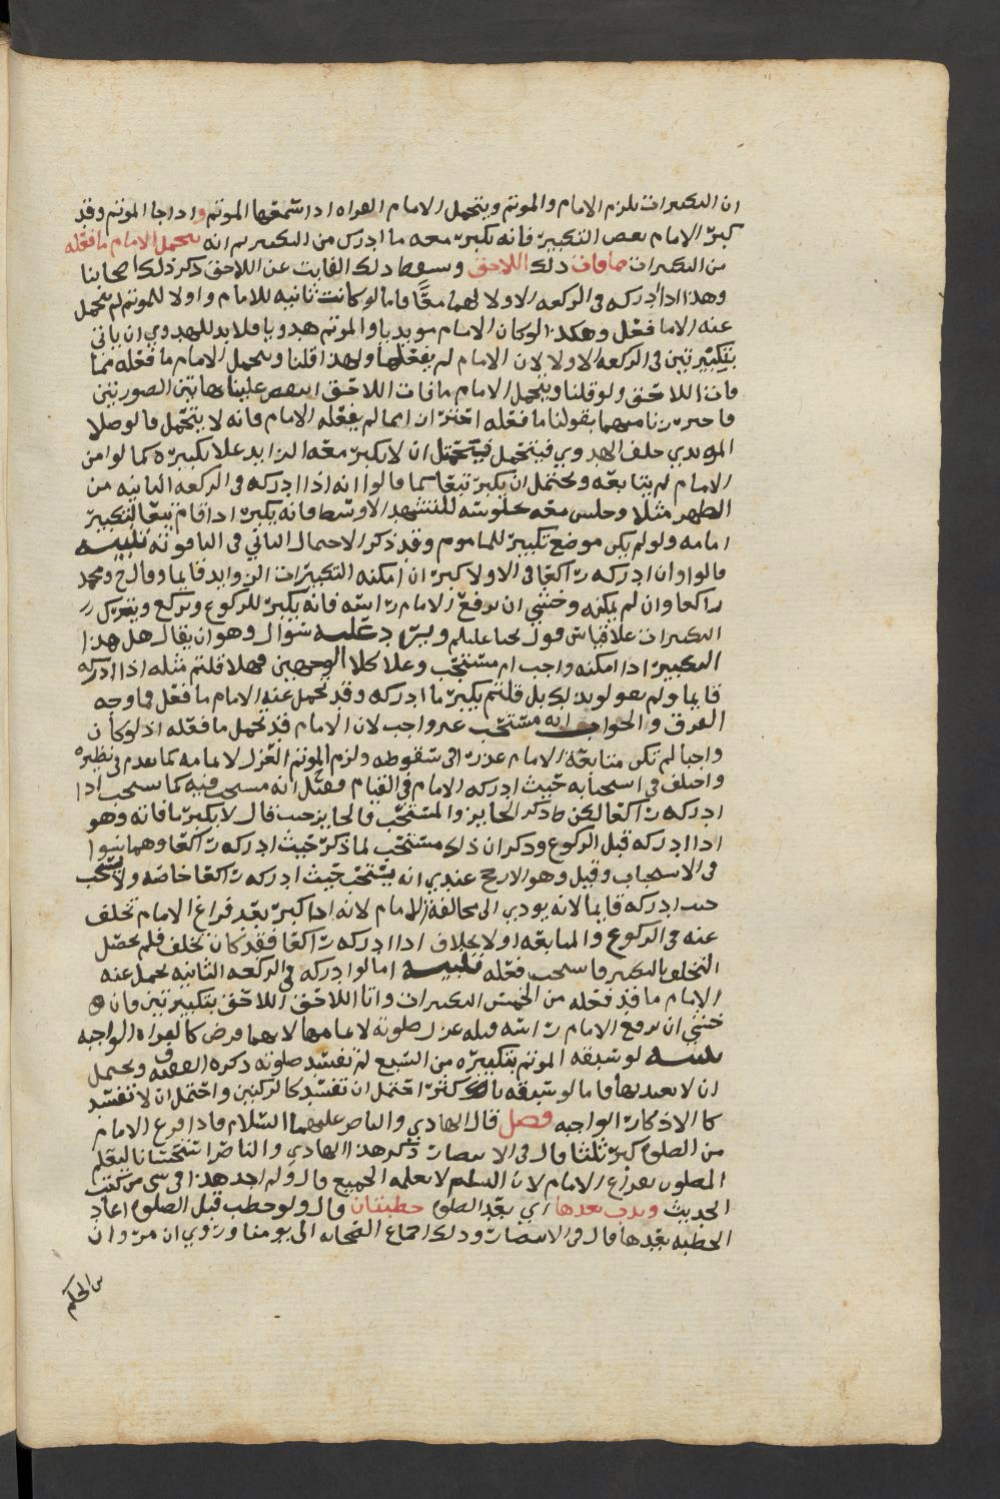 ان التكبيرات تلزم الامام والموتم ويتحمل الامام القراه اذا سمعها الموتم واذا جا الموتم وقد
كبر الامام بعض التكبير فانه يكبر معه ما ادرك من التكبير ثم انه يتحمل الامام ما فعله
من التكبيرات مما فات ذلك اللاحق وسقط ذلك الفايت عن اللاحق ذكر ذلك اصحابنا
وهذا اذا ادركه في الركعه الاولا لهما معًا فاما لو كانت ثانيه للامام واولا للموتم لم يتحمل
عنه الا ما فعل وهكذا لو كان الامام مويديا والموتم هدويا فلا بد للهدوي ان ياتي
بتكبيرتين في الركعه الاولا لان الامام لم يفعلها ولهذا قلنا ويتحمل الامام ما فعله مما
فات اللاحق ولو قلنا ويتحمل الامام ما فات اللاحق انتقض علينا بهاتين الصورتين
فاحترزنا منهما بقولنا ما فعله احتراز اا مما لم يفعله الامام فانه لا يتحمل فا لو صلا
المويدي خلف الهدوي فيحتمل ان لا يكبر معه الزايد علا تكبيره كما لو امن
الامام لم يتابعه ويحتمل ان يكبر تبعا كما قالوا انه اذا ادركه في الركعه الثانيه من
الظهر مثلا وجلس معه بجلوسه للتشهد الاوسط فانه يكبر اذا قام تبعا لتكبير
امامه ولو لم يكن موضع تكبير للماموم وقد ذكر الاحتمال الثاني في الياقوته تنبيه
قالوا وان ادركه راكعا في الاولا كبر ان امكنه التكبيرات الزوايد قايما وقال ح ومحمد
راكعا وان لم يمكنه وخشي ان يرفع الامام راسه فانه يكبر للركوع ويركع ويترك
التكبيرات علا قياس قول يحيا عليلم ويرد عليه سوال وهو ان يقال هل هذا
التكبير اذا امكنه واجب ام مستحب وعلا كلا الوجهين فهلا قلتم مثله اذا ادركه
قايما ولم تقولوا بذلك بل قلتم يكبر ما ادركه وقد تحمل عنه الامام ما فعل فما وجه
الفرق والجواب انه مستحب غير واجب لان الامام قد تحمل ما فعله اذ لو كان
واجبا لم تكن متابعة الامام عذرا في سقوطه ولزم الموتم العزل لامامه كما تقدم في نظيره
واختلف في استحبابه حيث ادركه الامام في القيام فقيل انه مستحب فيه كما يستحب اذا
ادركه راكعا لكن ما ذكر الجايز والمستحب فالجايز حيث قال لا يكبر ما فاته وهو
اذا ادركه قبل الركوع وذكر ان ذلك مستحب لما ذكر حيث ادركه راكعا وهما سوا
في الاستحباب وقيل وهو الارجح عندي انه يستحب حيث ادركه راكعا خاصه ولا يستحب
حيث ادركه قايما لانه يودي الى مخالفة الامام لانه اذا كبر بعد فراغ الامام تخلف
عنه في الركوع والمتابعه اولا بخلاف اذا ادركه راكعا فقد كان تخلف فلم يحصل
التخلف بالتكبير فاستحب فعله تنبيه اما لو ادركه في الركعه الثانيه تحمل عنه
الامام ما قد فعله من الخمس التكبيرات واتا اللاحق بتكبيرتين فان
خشي ان يرفع الامام راسه قبله عزل صلوته لاتمامها لانهما فرض كالقراه الواجبه
تنبيه لو سبقه الموتم بتكبيره من السبع لم تفسد صلوته ذكره الفقيه ف ويحتمل
ان لا يعتد بها فاما لو سبقه باكثر احتمل ان تفسد كالركنين واحتمل ان لا تفسد
كالاذكار الواجبه فصل قال الهادي والناصر عليهما السلام فاذا فرغ الامام
من الصلوه كبر ثلثا قال في الانتصار ذكر هذا الهادي والناصر استحسانا ليعلم
المصلون بفراغ الامام لان التسليم لا يعلمه الجميع قال ولم اجد هذا في شي من كتب
الحديث وندب بعدها اي بعد الصلوه خطبتان قال ولو خطب قبل الصلوه اعاد
الخطبه بعدها قال في الانتصار وذلك اجماع الصحابه الى يومنا وروي ان مروان
بن الحكم